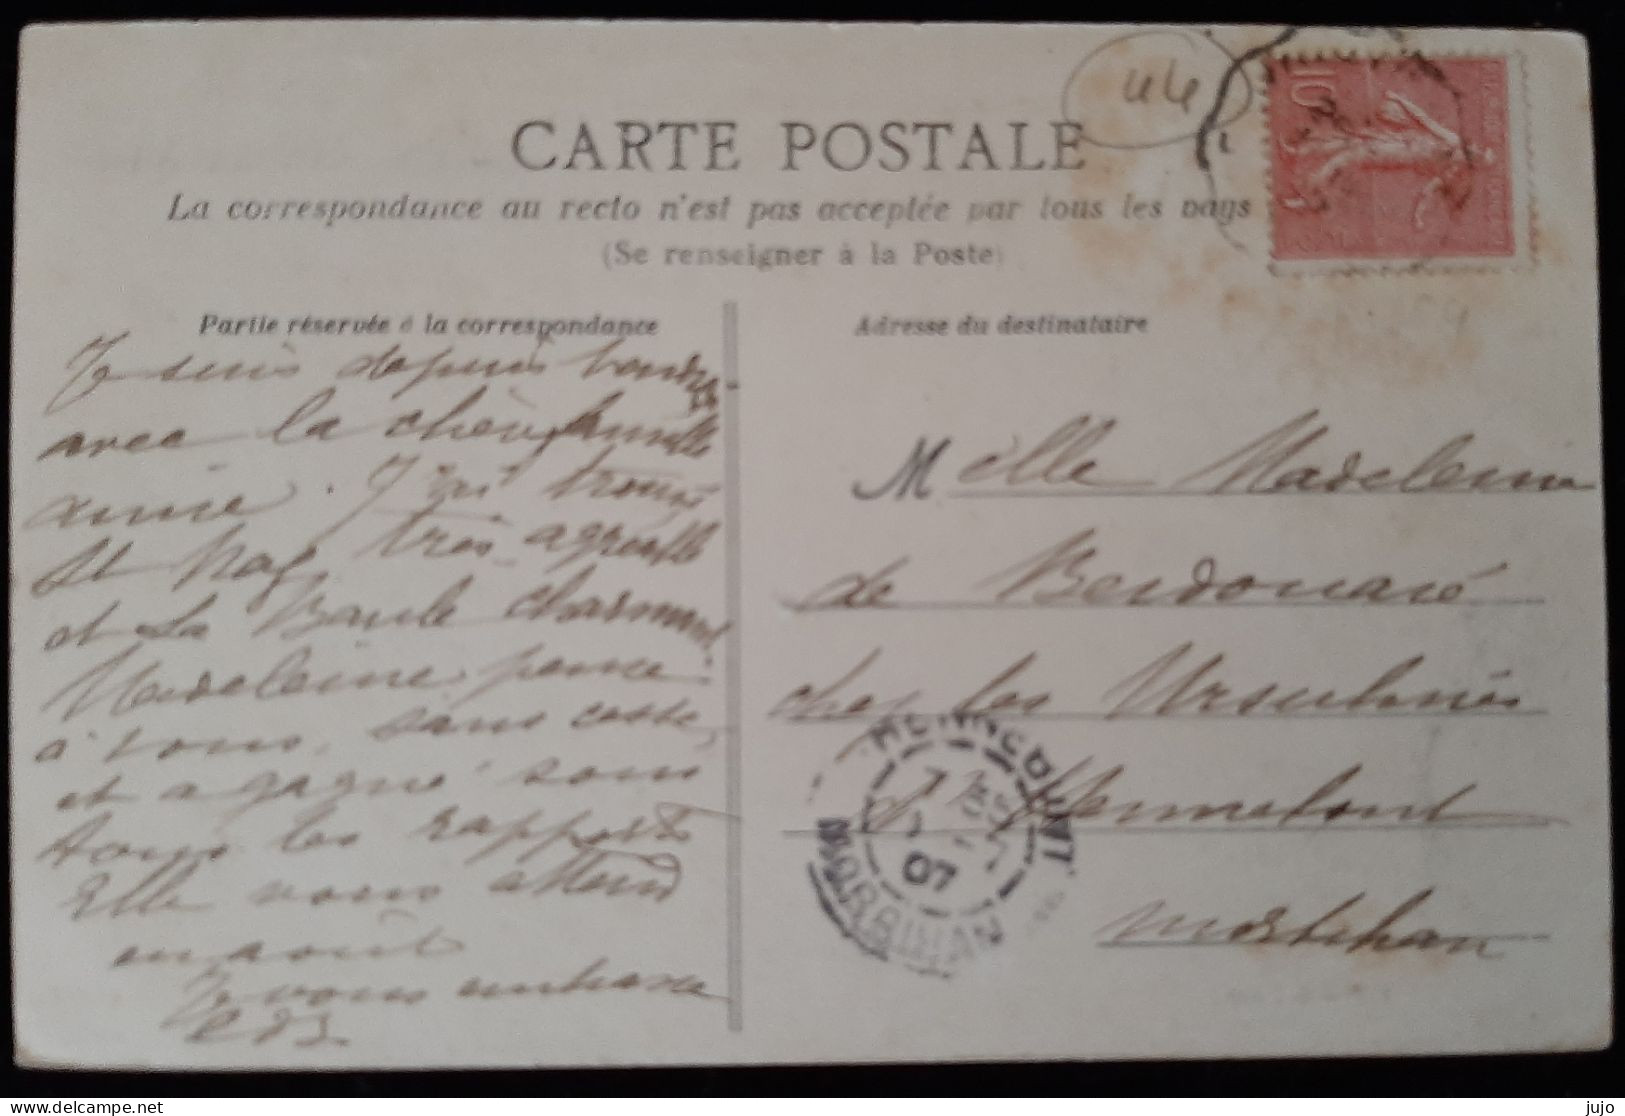 44
CARTE POSTALE
La correspondance au recto n'est pas acceptée par tous les pays
(Se renseigner à la Poste)
Partie réservée à la correspondance
Je suis depuis
avec la chère famille
amie. J'ai trouvé
St Naz. très agréable
et La Baule charmant
Madeleine pense
à vous sans cesse
et a gagné sous
tous les rapports
Elle vous attend
en août
Je vous embrasse
Adresse du destinataire
Melle Madeleine
de Berdouaré
chez les Ursulines
d'Hennebont
Morbihan
HENNEBONT
07
MORBIHAN
10
delcampe.net
jujo